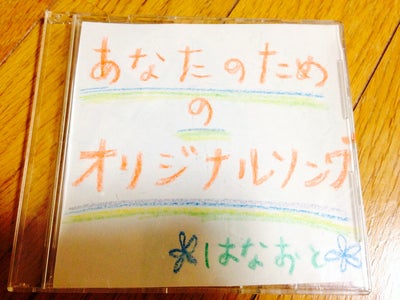 あなたのため
の
オリジナルソング
はなおと